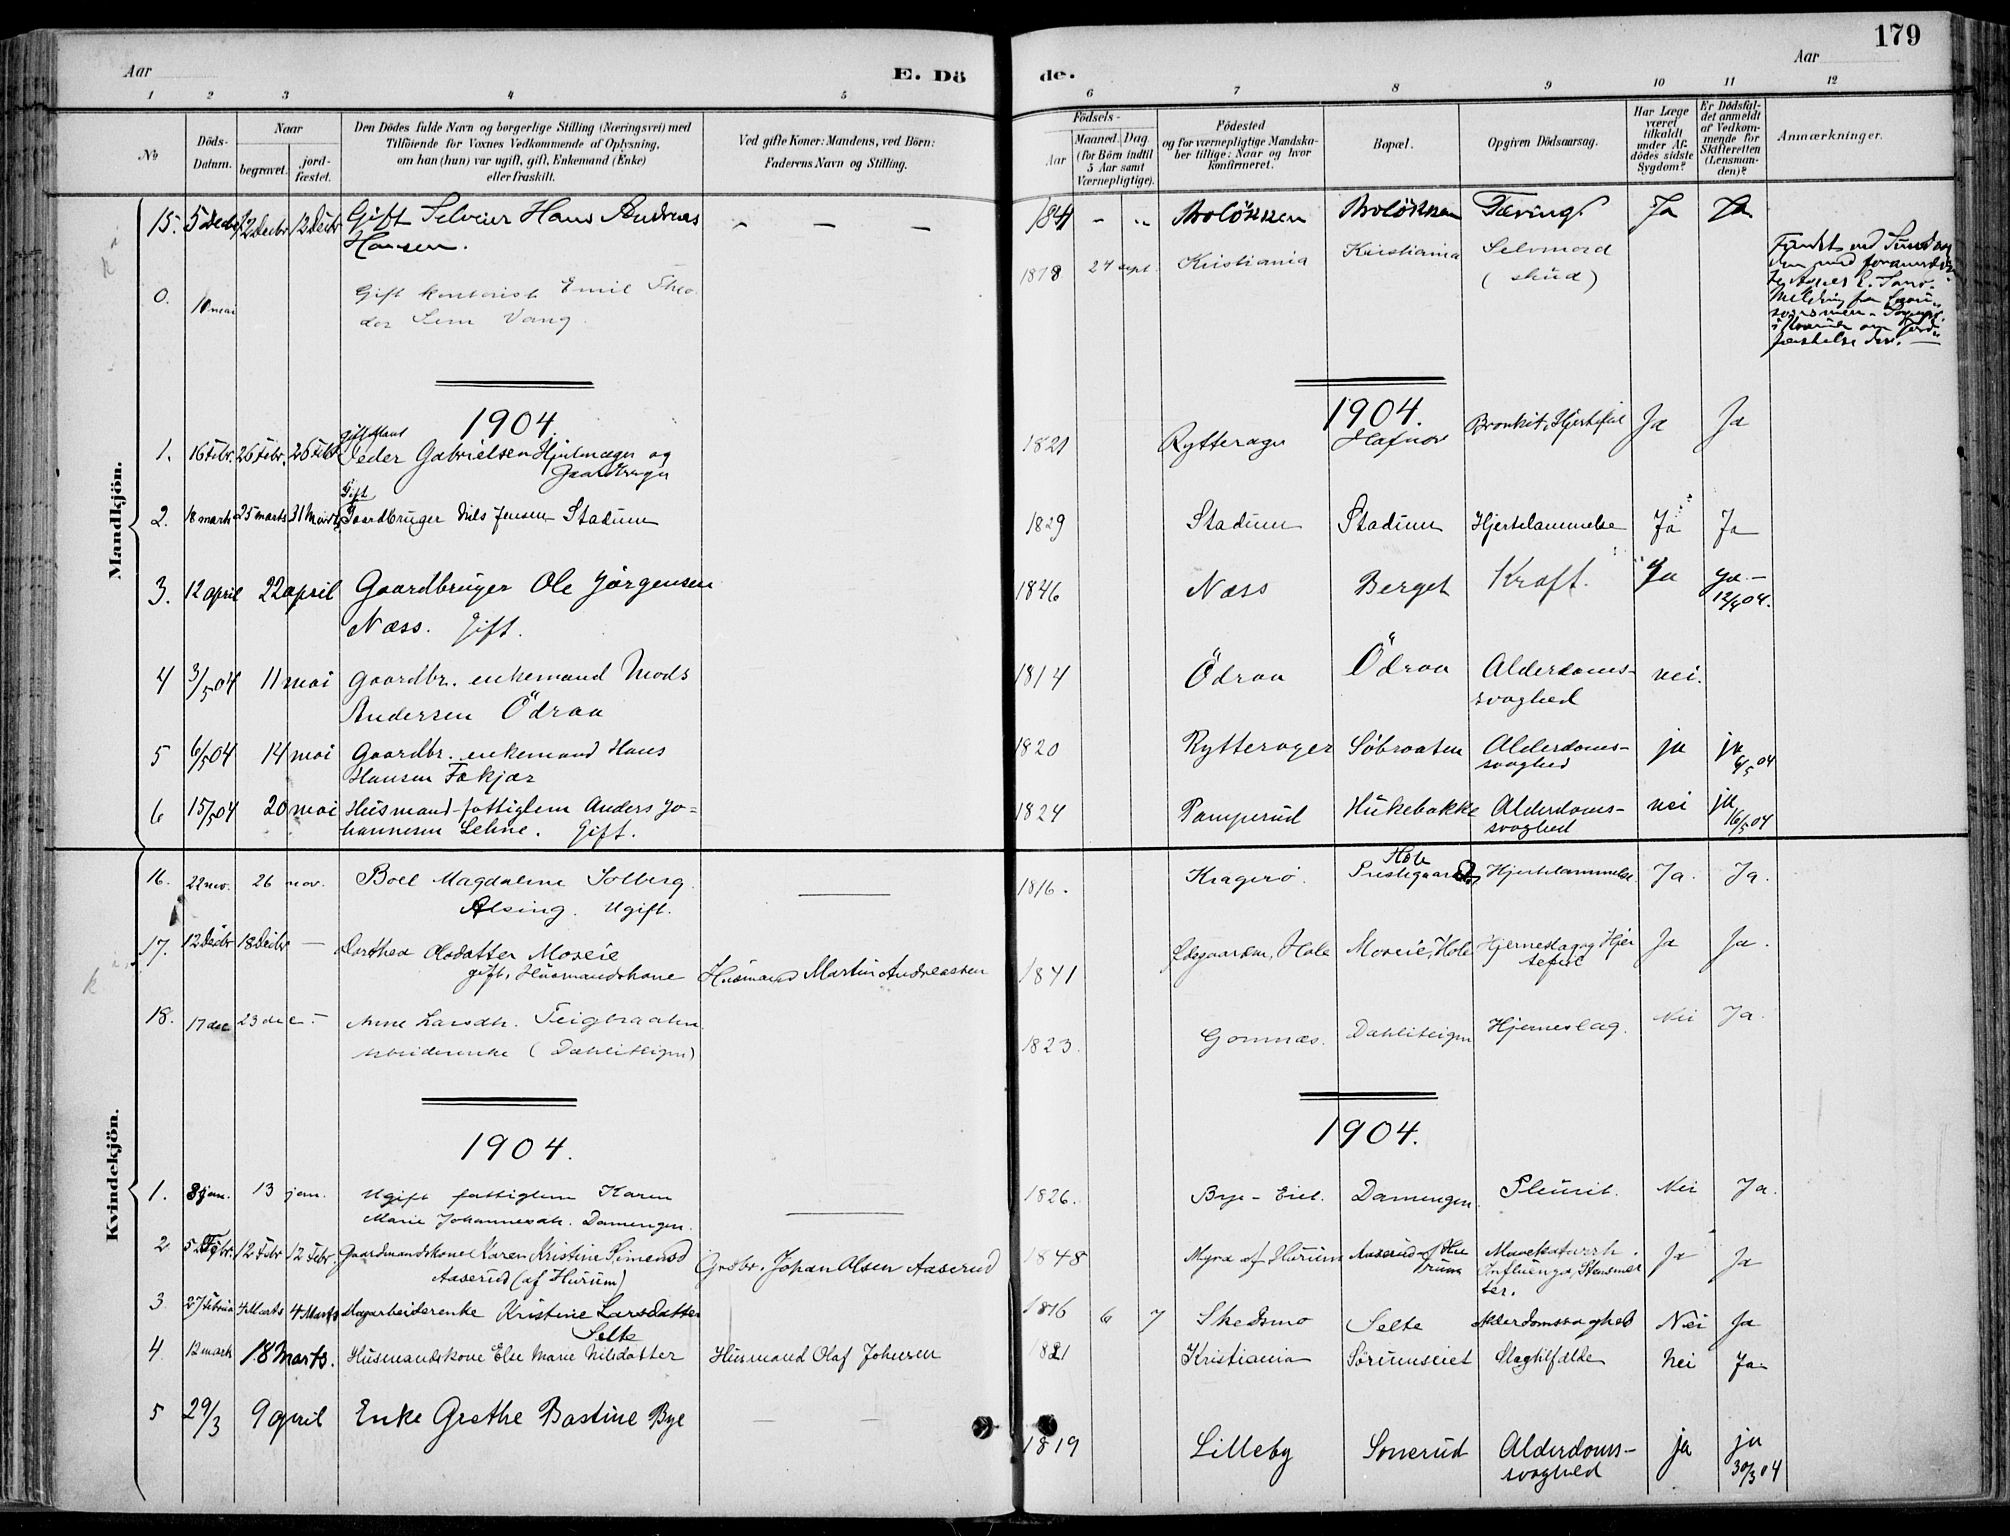 179
Aar
E. Dö
de.
Aar
1 2 3 4 5
6 7 8 9 10 11 12
No
Döds-
Datum.
Naar
begravet.
jord-
fæstet.
Den Dödes fulde Navn og borgerlige Stilling (Næringsvei) med
Tilföiende for Voxnes Vedkommende af Oplysning,
om han (hun) var ugift, gift, Enkemand (Enke)
eller fraskilt.
Ved gifte Koner: Mandens, ved Börn:
Faderens Navn og Stilling.
Födsels-
Aar
Maaned. Dag.
(for Börn indtil
5 Aar samt
Værnepligtige).
Födested
og for værnepligtige Mandska-
ber tillige: Naar og hvor
konfirmeret.
Bopæl.
Opgiven Dödsaarsag.
Har Læge
været
tilkaldt
under Af-
dödes sidste
Sygdom?
Er Dödsfal-
det anmeldt
af Vedkom-
mende for
Skifteretten
(Lensman-
den)?
Anmærkninger.
Mandkjön.
15. 5 Decbr 12 Decbr 12 Decbr Gift Selveier Hans Andreas
Hansen.
Tæring Ja Ja
0. 10 mai Gift kontorist Emil Theo-
dor Sem Vang.
1878 24 sept. Kristiania Kristiania Selvmord
(skud)
1904. 1904.
1. 16 Febr. 26 Febr. 26 Febr. Peder Gabrielsen Hjulmager og
Gaardbruger
1821 Rytterager Bronkit, Hjertefeil Ja Ja
2. 18 marts 25 marts 31 Marts Gift
Gaardbruger Nils Jensen Stadum 1829 Stadum Stadum Hjertelammelse Ja Ja
3. 12 april 22 april Gaardbruger Ole Jörgensen
Næss. Gift. 1846 Næss Berget Kræft. Ja ja.-
12/4 04.
4 3/5 04 11 mai Gaardbr. enkemand Mads
Andersen Ödraa 1814 Ödraa Ödraa Alderdoms-
svaghed nei.
5 6/5 04 14 mai Gaardbr. enkemand Hans
Hansen Fekjær 1820 Rytterager Söbraaten Alderdoms-
svaghed ja ja
6/5 04
6 15/5 04 20 mai Husmand - fattiglem Anders Jo-
hannesen Lehne. Gift. 1824 Pamperud Hukebakke Alderdoms-
svaghed nei ja
16/5 04
Kvindekjön.
16. 22 nov. 26 nov. Boel Magdalene Solberg
Alsing. Ugift. 1816. Kragerö. Hole
Prestegaard Hjertelammelse. Ja. Ja.
17. 12 Decbr 18 Decbr — Dorthea Olsdatter Moseie
gift, Husmandskone Husmand Martin Andreassen 1841 Moseie, Hole Hjerneslag og Hjer
tefeil Ja Ja.
18. 17 dec 23 dec. - Anne Larsdtr. Teigbraaten
Arbeiderenke (Dæhliteigen) 1823. Gomnæs. Dæhliteigen Hjerneslag. Nei Ja.
1904. 1904.
1. 8 jan. 13 jan. Ugift fattiglem Karen
Marie Johannesdtr. Damengen. 1826. Bye-Eiet. Damengen Pleurit. Nei Ja.
2 5 Febr. 12 Febr. 12 Febr. Gaardmandskone Karen Kristine Simensd
Aaserud (af Hurum) Grdbr. Johan Olsen Aaserud 1848 Myra af Hurum Aaserud af Hu
rum Mavekatarrh.
Influenza,
ter. Ja Ja
3 27 Februar 4 Marts 4 Marts Kristine Larsdatter
Selte 1816 6 7 Skedsmo Selte Alderdomssvaghed Nei Ja
4. 12 marts 18 Marts. Husmandskone Else Marie Nilsdatter Husmand Olaf Johnsen 1821 Kristiania Sörumseiet Slagtilfælde Nei Ja
5 29/3 9 april Enke Grethe Bastine Bye — — 1819 Lilleby Sonerud Alderdoms-
svaghed ja ja
30/3 04